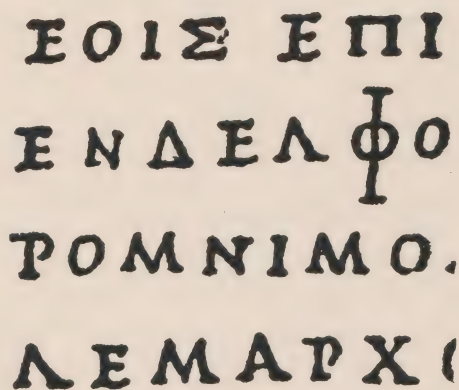 ΕΟΙΣ ΕΠΙ
ΕΝΔΕΛΦΟ
ΡΟΜΝΙΜΟ.
ΛΕΜΑΡΧΟ